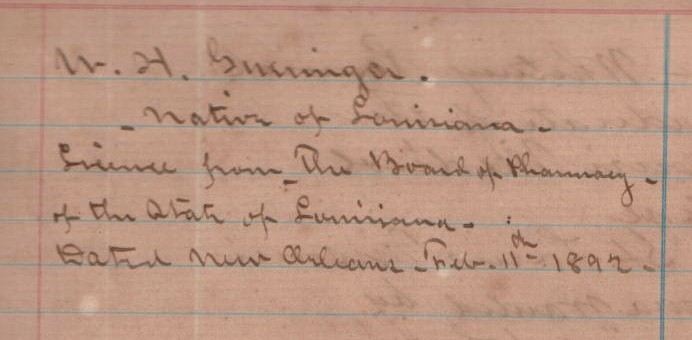 W. H.
- Native of Louisiana -
License from The Board of Pharmacy -
of the State of Louisiana -
Dated New Orleans - Feb. 11th 1892 -